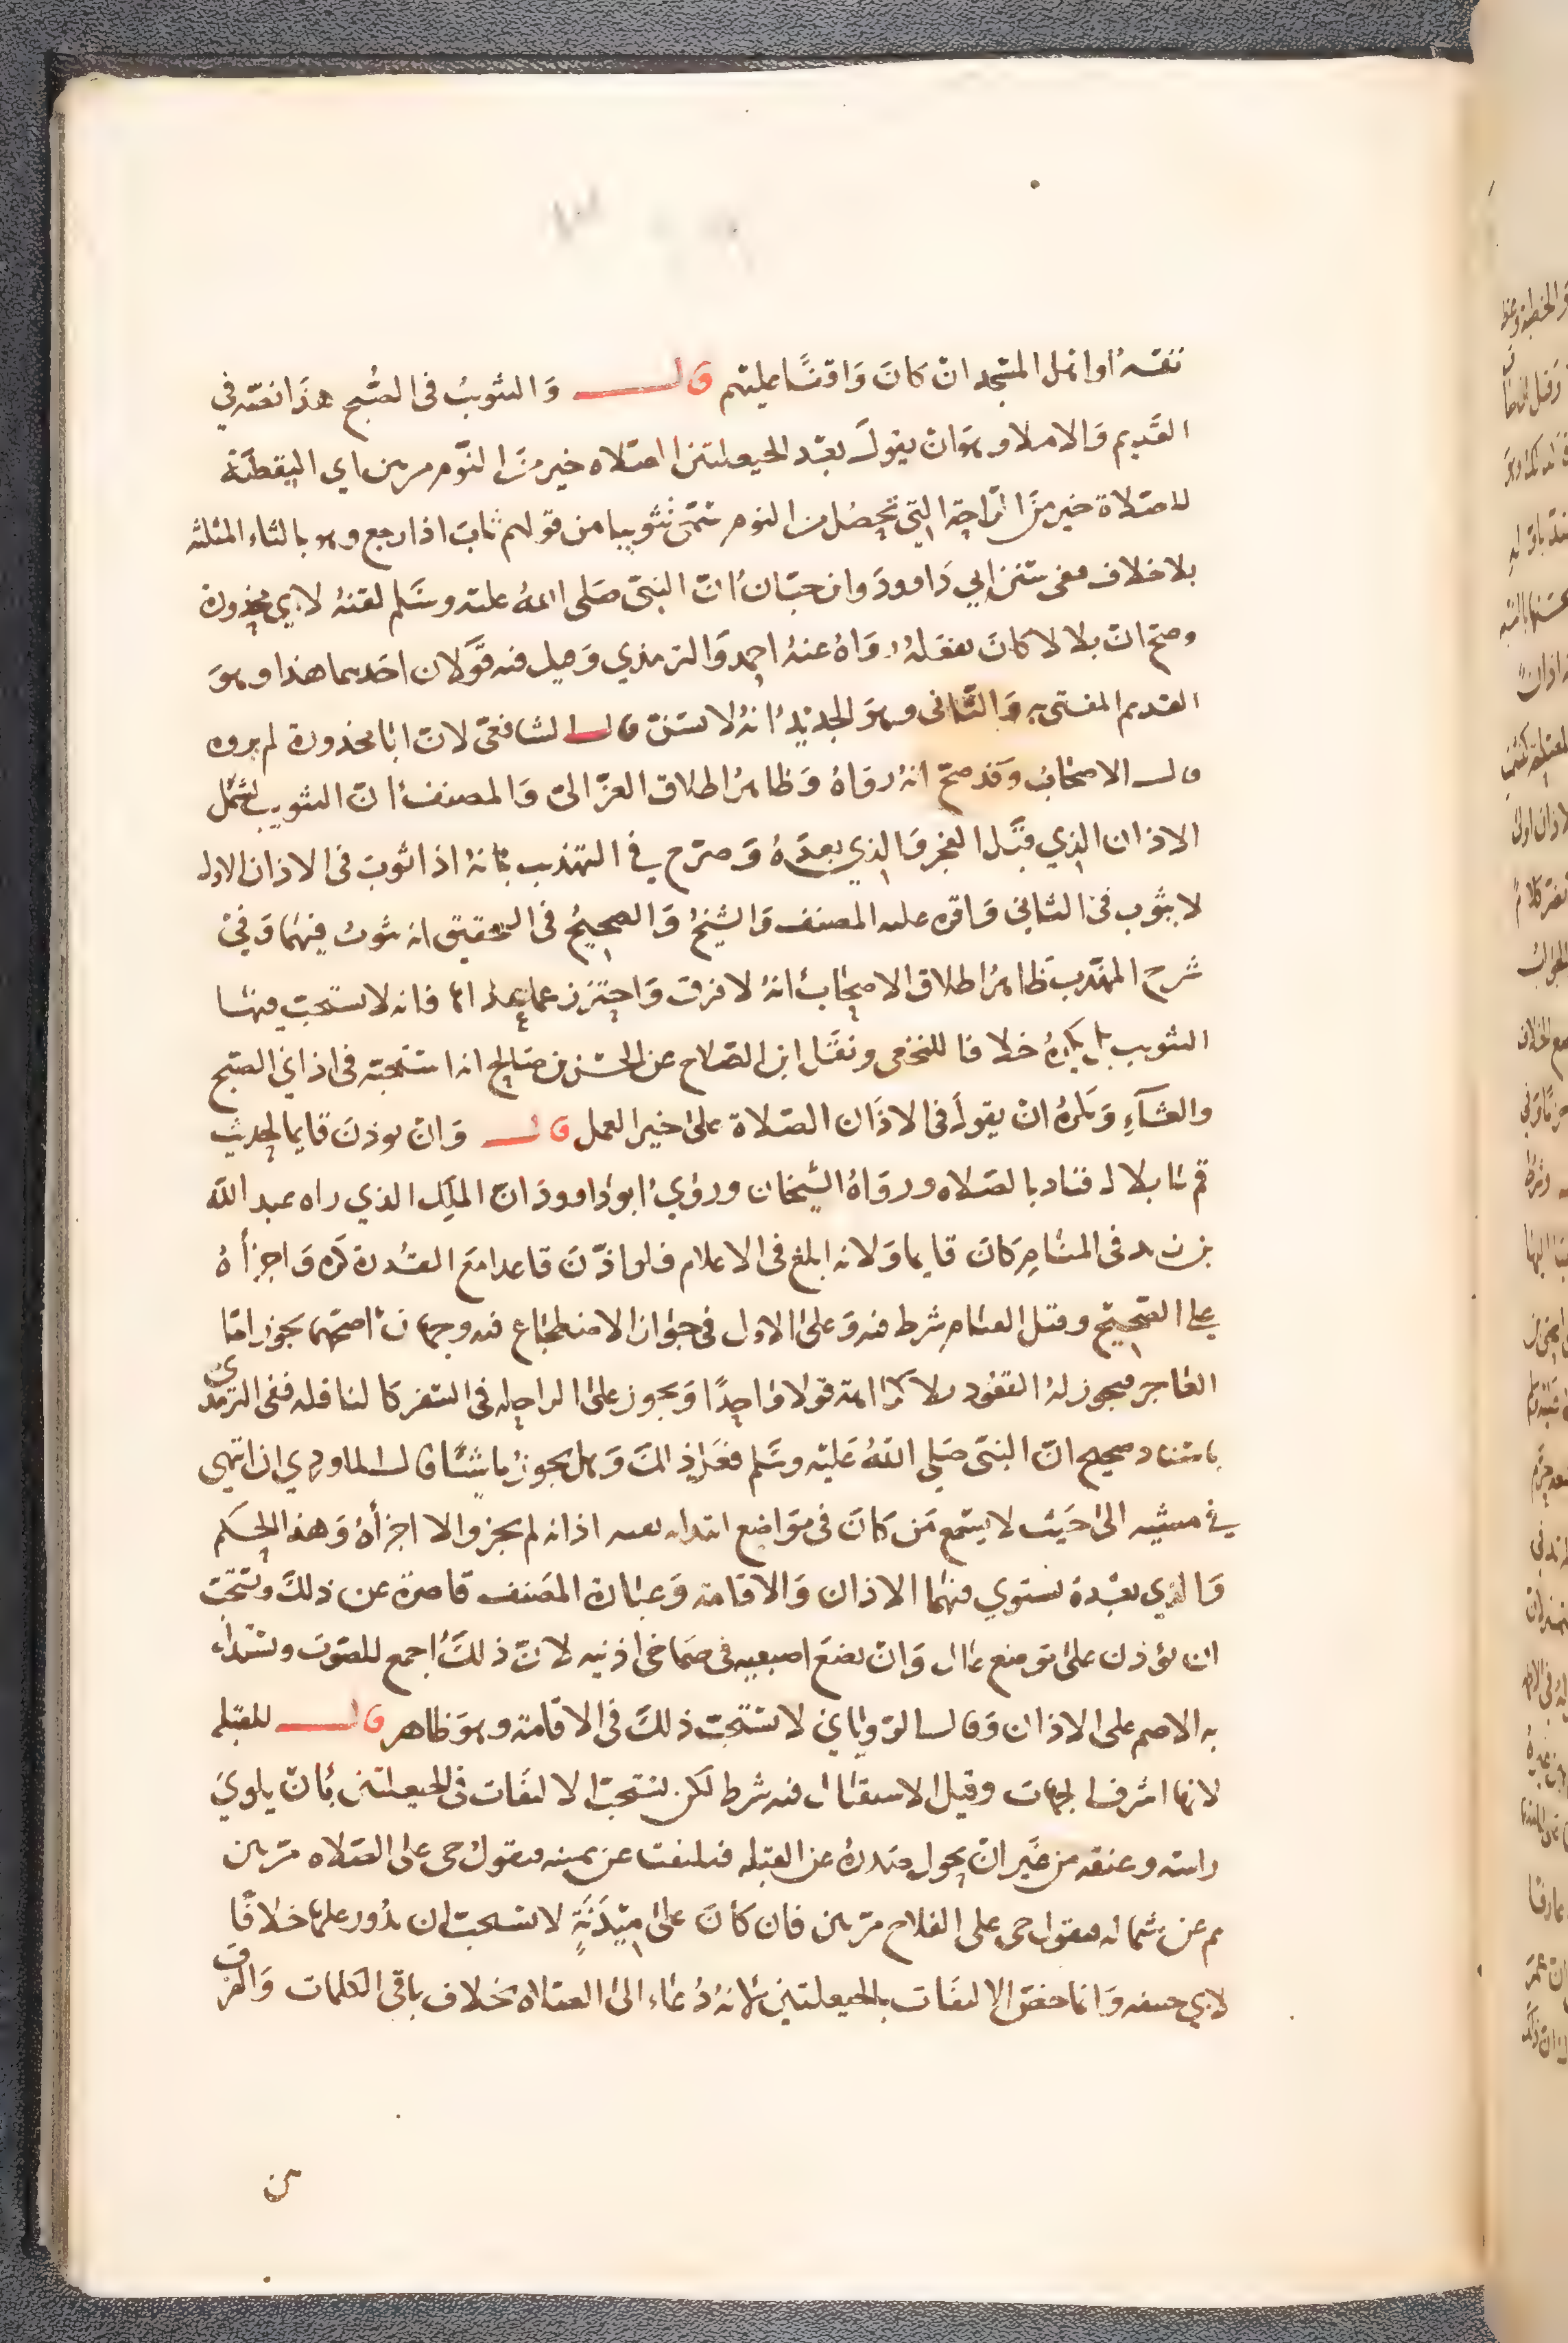 نفسه او اهل المسجد ان كان واقفا عليهم قال والتثويب فى الصبح هذا نصه في
القديم والاملا وهو ان يقول بعد الحيعلتين الصلاه خير من النوم مرتين اي اليقظة
للصلاة خير من الراحة التي تحصل من النوم سمى تثويبا من قولهم ثاب اذا رجع وهو بالثاء المثلثه
بلا خلاف ففى سنن ابي داوود وابن حبان ان النبى صلى الله عليه وسلم لقنه لابي محذورة
وصح ان بلالا كان يفعله رواه عنه احمد والترمذي وقيل فيه قولان احدهما هذا وهو
القديم المفتى به والثانى وهو الجديد انه لا يسن قال الشافعى لان ابا محذورة لم يروه
قال الاصحاب وقد صح انه رواه وظاهر اطلاق الغزالى والمصنف ان التثويب يشمل
الاذان الذي قبل الفجر والذي بعده وصرح في التهذيب بانه اذا ثوب فى الاذان الاول
لا يثوب فى الثاني واقره عليه المصنف والشيخ والصحيح فى التحقيق انه يثوب فيهما وفي
شرح المهذب ظاهر اطلاق الاصحاب انه لا فرق واحترز عما عداها فانه لا يستحب فيها
التثويب بل يكره خلافا للنخعى ونقل ابن الصلاح عن الحسن بن صالح انه استحبه فى اذاني الصبح
والعشاء ويكره ان يقول فى الاذان الصلاة على خير العمل قال وان يوذن قايما لحديث
قم يا بلال فناد بالصلاه ورواه الشيخان وروي ابو داوود ان الملك الذي راه عبد الله
بن زيد فى المنام كان قايما ولانه ابلغ فى الاعلام فلو اذن قاعدا مع القدرة كره واجزأه
على الصحيح وقيل القيام شرط فيه وعلى الاول فى جواز الاضطجاع فيه وجهان اصحهما يجوز اما
العاجز فيجوز له القعود بلا كراهة قولا واحدا ويجوز على الراحله فى السفر كالنافله ففى الترمذي
باسناد صحيح ان النبى صلي الله عليه وسلم فعل ذلك وهل يجوز ماشيا قال الماوردي ان انتهى
في مشيه الى حيث لا يسمع من كان فى مواضع ابتدايه بقيه اذانه لم يجز والا اجزأه وهذا الحكم
والذي بعده يستوي فيهما الاذان والاقامة وعبارة المصنف قاصرة عن ذلك ويستحب
ان يؤذن على موضع عال وان يضع اصبعيه فى صماخى اذنيه لان ذلك اجمع للصوت ويستدل
به الاصم على الاذان وقال الروياني لا يستحب ذلك فى الاقامة وهو ظاهر قال للقبله
لانها اشرف الجهات وقيل الاستقبال فيه شرط لكن يستحب الالتفات فى الحيعلتين بان يلوي
راسه وعنقه من غير ان يحول صدره عن القبله فيلتفت عن يمينه فيقول حى على الصلاه مرتين
ثم عن شماله فيقول حى على الفلاح مرتين فان كان على ميذنة لا يستحب ان يدور عليها خلافا
لابي حنيفه وانما خص الالتفات بالحيعلتين لانه دعاء الى الصلاه بخلاف باقى الكلمات والفرق